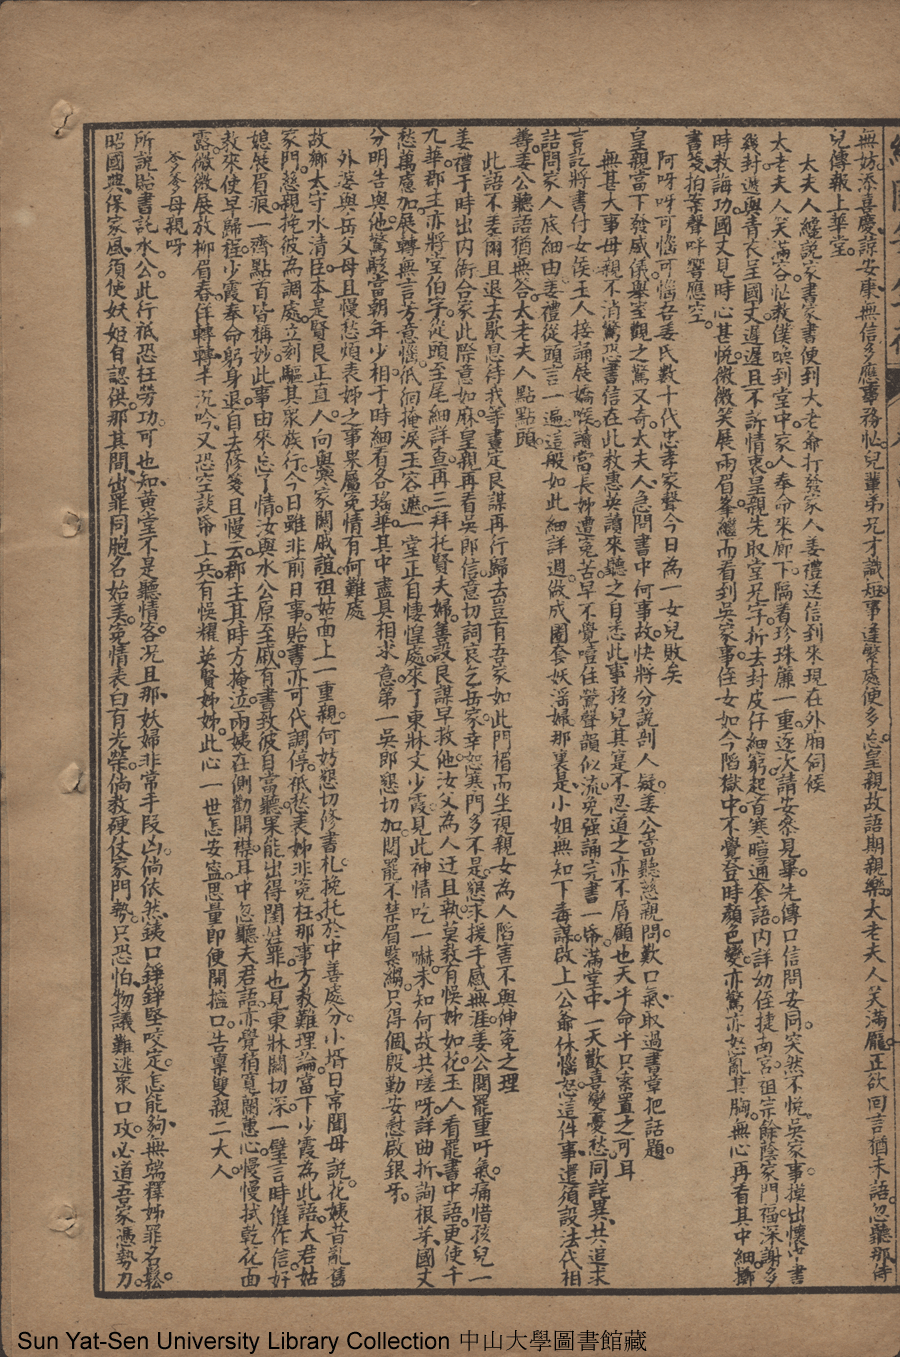 無妨。添喜慶諒安康。無信多應事務忙。兒輩弟兄才識短。事逢緊處便多忘。皇親故語期親樂。太老夫人笑滿龐。正欲回言猶未語。忽聽那侍
兒傳報上華堂。
太夫人纔說家書。家書便到。大老爺打發家人姜禮送信到來。現在外廂伺候
太老夫人笑滿容。忙教僕婦到堂中。家人奉命來廊下。隔着珍珠簾一重。逐次請安叅見畢。先傳口信問安同。突然不悅吳家事。摸出懷中書
幾封。遞與青長呈國丈。遲遲且不訴情衷。皇親先取堂兄字。折去封皮仔細窮。起首寒暄通套語。內詳幼侄捷南宮。祖宗餘蔭家門福。深謝多
時教誨功。國丈見時心甚悅。微微笑展兩眉峯。繼而看到吳家事。侄女如今陷獄中。不覺登時顏色變。亦驚亦怒亂其胸。無心再看其中細。擲
書箋拍案聲呼響應空。
阿呀呀可惱可惱。吾姜氏數十代忠孝家聲。今日為一女兒敗矣
皇親當下發威儀。舉室觀之驚又奇。太夫人急問書中何事故。快將分說剖人疑。姜公當聽慈親問。歎口氣取過書章把話題。
無甚大事。母親不消驚恐。書信在此。教惠英讀來聽之。自悉此事孩兒其實是不忍道之。亦不屑顧也。天乎命乎。只索置之可耳
言訖將書付女侯。王人接誦展嬌喉。讀當長姊遭冤苦。早不覺噎住鶯聲韻似流。免強誦完書一帋。滿堂中一天歡喜變憂愁。同詫異。共追求
詰問家人底細由。姜禮從頭言一遍。這般如此細詳週。做成圈套妖淫婦。那裏是小姐無知下毒謀。啟上公爺休惱怒。這件事還須設法代相
籌。姜公聽語猶無答。太老夫人點點頭。
此語不委爾且退去歇息。待我等畫定良謀再行歸去。豈有吾家如此門楣而坐視親女為人陷害不與伸冤之理
姜禮于時出內衙。合家此際意如麻。皇親再看吳郎信。意切詞哀乞岳家。幸恕寒門多不是。懇求援手感無涯。姜公閱罷重吁氣。痛惜孩兒一
九華。郡主亦將堂伯字。從頭至尾細詳查。再三拜托賢夫婦。籌設良謀早救他。汝父為人迂且執。莫教有悞姊如花。王人看罷書中語。更使千
愁萬慮加。展轉無言芳意懨。低徊掩淚玉容遮。一堂正自悽惶處。來了東牀文少霞。見此神情吃一嚇。未知何故共嗟呀。詳曲折。詢根芽。國丈
分明告與他。驚駭當朝年少相。于時細看各瑤華。其中盡具相求意。第一吳郎懇切加。閱罷不禁眉緊縐。只得個殷勤安慰啟銀牙。
外婆與岳父母且慢愁煩。表姊之事果屬冤情。有何難處
故鄉太守水清臣。本是賢良正直人。向與吳家關戚誼。祖姑面上一重親。何妨懇切修書札。挽托於中善處分。小壻日常聞母說。花姨昔亂舊
家門。慈親挽彼為調處。立刻驅其眾族行。今日雖非前日事。貽書亦可代調停。祇愁表姊非冤枉。那事方教難理論。當下少霞為此語。太君姑
媳展眉痕。一齊點首皆稱妙。此事由來忘了情。汝與水公原至戚。有書教彼自當聽。果能出得閨娃罪。也見東牀關切深。一壁言時催作信。好
教來使早歸程。少霞奉命躬身退。自去修箋且慢云。郡主其時方掩泣。兩姨在側勸開襟。耳中忽聽夫君語。亦覺稍寬蘭蕙心。慢慢拭乾花面
露。微微展放柳眉春。徉轉轉。半沉吟。又恐空談帋上兵。有悞耀英賢姊姊。此心一世怎安寧。思量即便開檀口。告稟雙親二大人。
爹爹母親呀
所說貽書託水公。此行祇恐枉勞功。可也知黃堂不是聽情客。况且那妖婦非常手段凶。倘依然鉄口錚錚堅咬定。怎能夠無端釋姊罪名鬆。
昭國典。保家風。須使妖姬自認供。那其間出罪同胞名始美。冤情表白有光榮。倘教硬仗家門勢。只恐怕物議難逃眾口攻。必道吾家憑勢力。
Sun Yat-Sen University Library Collection 中山大學圖書館藏